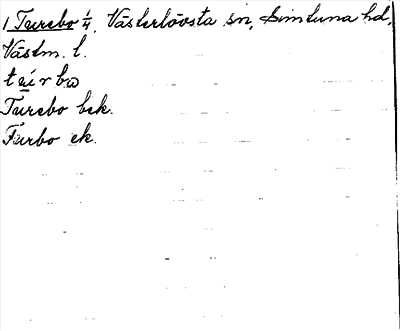 1 Turebo 1/4, Västerlövsta sn, Simtuna hd,
Västm. l.
Turebo bek.
Turbo ek.